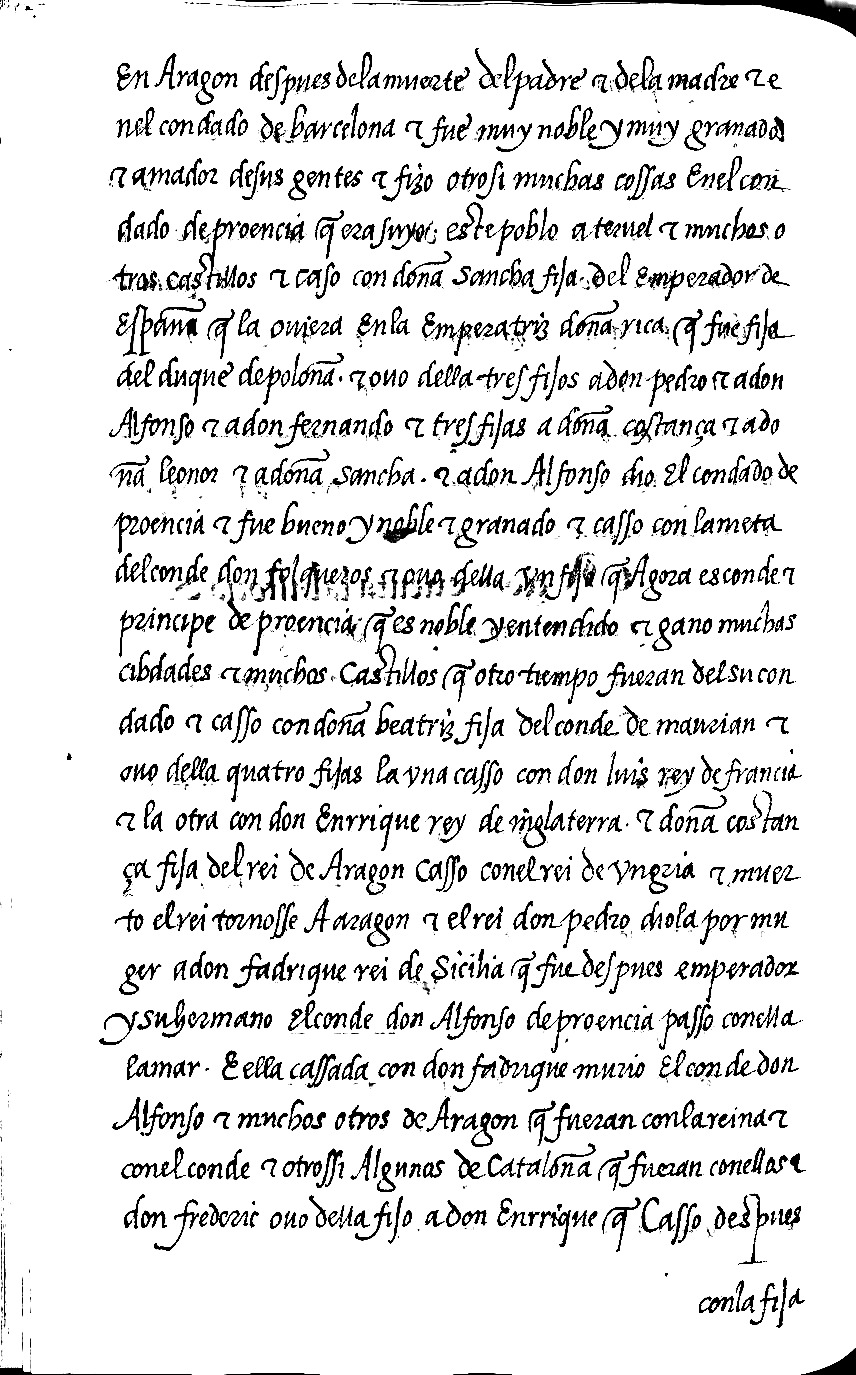 En Aragon despues dela muerte del padre ⁊ dela madre ⁊ e
nel condado de barcelona ⁊ fue muy noble y muy granado
⁊ amador desus gentes ⁊ fizo otrosi muchas cossas Enel con
dado de proencia q̃ era suyo este poblo a teruel ⁊ muchos o
tros castillos ⁊ caso con doña Sancha fija del Emperador de
España q̃ la ouiera En la Emperatriz doña rica q̃ fue fija
del duque de poloña · ⁊ ouo della tres fijos a don pedro ⁊ a don
Alfonso ⁊ a don fernando ⁊ tres fijas a doña costança ⁊ a do
ña leonor ⁊ a doña Sancha · ⁊ a don Alfonso dio El condado de
proencia ⁊ fue bueno y noble ⁊ granado ⁊ casso con la meta
del conde don folqueros ⁊ ouo della vn fijo q̃ Agora es conde ⁊
principe de proencia q̃ es noble y entendido ⁊ gano muchas
cibdades ⁊ muchos Castillos q̃ otro tiempo fueran del su con
dado ⁊ casso con doña beatriz fija del conde de maurian ⁊
ouo della quatro fijas la vna casso con don luis rey de francia
⁊ la otra con don Enrrique rey de inglaterra · ⁊ doña costan
ça fija del rei de Aragon Casso conel rei de vngria ⁊ muer
to el rei tornosse A aragon ⁊ el rei don pedro diola por mu
ger a don fadrique rei de Sicilia q̃ fue despues emperador
y su hermano El conde don Alfonso de proencia passo conella
la mar · E ella cassada con don fadrique murio El conde don
Alfonso ⁊ muchos otros de Aragon q̃ fueran con la reina ⁊
conel conde ⁊ otrossi Algunos de Cataloña q̃ fueran conellos ⁊
don frederic ouo della fijo a don Enrrique q̃ Casso despues
con la fija